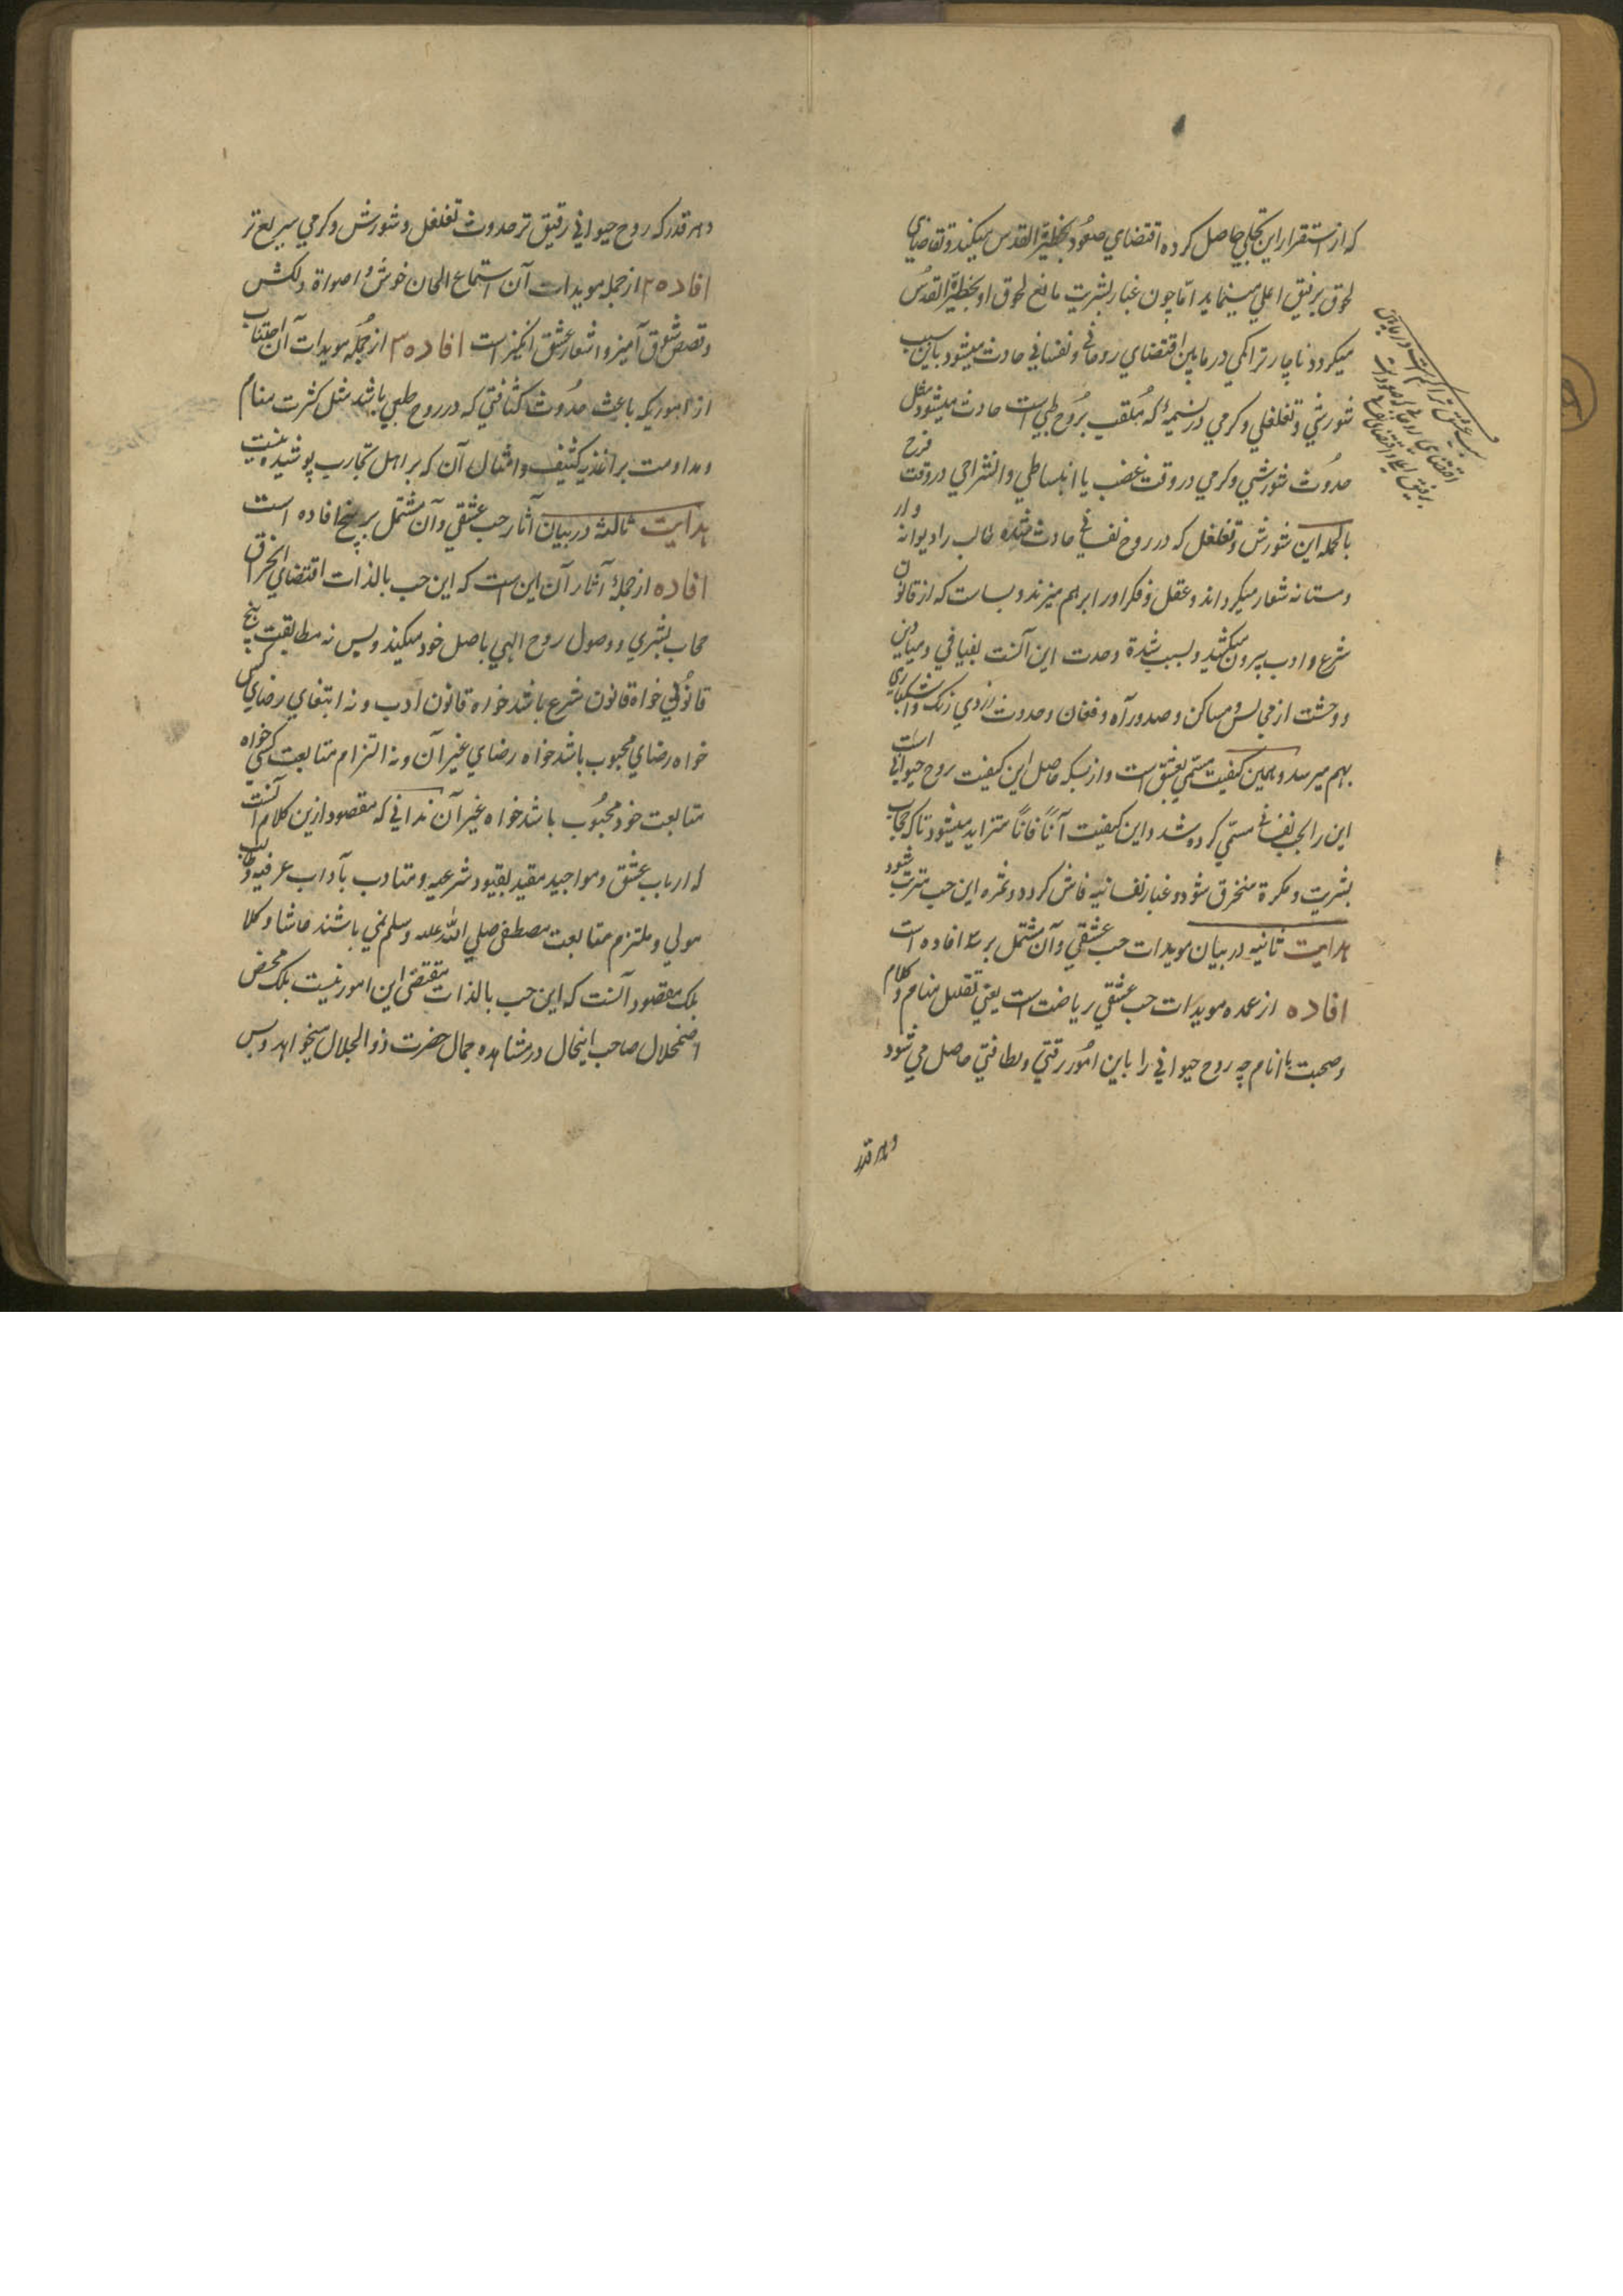 که از استقرار این تجلی حاصل کرده اقتضای صعود بحظیرة القدس میکند و تقاضای
لحوق برفیق اعلی مینماید اما چون غبار بشریت مانع لحوق او بحظیرة القدس
میکردد ناچار تراکمی درمابین اقتضای روحانی و نفسانی حادث میشود باین سبب
شورشی و تغلغلی و کرمی در نسمه که ملقب بروح طبی است حادث میشود مثل
حدوث شورشی و کرمی در وقت غضب یا انبساطی و انشراحی در وقت فرح
بالجمله این شورش و تغلغل که در روح نفسانی حادث شده طالب را دیوانه وار
و مستانه شعار میکرداند و عقل و فکر او را برهم میزند و بسا است که از قانون
شرع و ادب بیرون میکشد و بسبب شدة وحدت این آنست بفیافی و میادین
و وحشت از مجالس و مساکن و صدور آه و فغان و حدوث زردی رنک و اشکباری
بهم میرسد و همین کیفیت مسمی بعشق است و از بسکه حاصل این کیفیت روح حیوانی است
این را بحب نفسانی مسمی کرده شد و این کیفیت آنًا فانًا متزاید میشود تا که حجاب
بشریت و مکرة منخرق شود و غبار نفسانیه فاش کردد و ثمره این حب مترتب شود
هدایت ثانیه در بیان مویدات حب عشقی و آن مشتمل بر سه افاده است
افاده از عمده مویدات حب عشقی ریاضت است یعنی تقلیل منام و کلام
و صحبت با انام چه روح حیوانی را باین امور رقتی و لطافتی حاصل می شود
و هر قدر
سبب عشق تراکم است درمابین
اقتضای روحانی که صعود است
و هر قدر که روح حیوانی رقیق تر حدوث تغلغل و شورش و کرمی سریع تر
افاده ۲ از جمله مویدات آن استماع الحان خوش و اصواة دلکش
و قصص شوق آمیز و اشعار عشق انکیز است افاده ۳ از جمله مویدات آن اجتناب
از اموریکه باعث حدوث کثافتی که در روح طبی باشد مثل کثرت منام
و مداومت بر اغذیه کثیف و امثال آن که بر اهل تجارب پوشیده نیست
هدایت ثالثه در بیان آثار حب عشقی و آن مشتمل بر پنج افاده است
افاده از جمله آثار آن این است که این حب بالذات اقتضای انخراق
حجاب بشری و وصول روح الهی باصل خود میکند و بس نه مطابقت هیچ
قانونی خواه قانون شرع باشد خواه قانون ادب و نه ابتغای رضای کسی
خواه رضای محبوب باشد خواه رضای غیر آن و نه التزام متابعت کسی خواه
متابعت خود محبوب باشد خواه غیر آن ندانی که مقصود ازین کلام آنست
که ارباب عشق و مواجید مقید بقیود شرعیه و متادب بآداب عرفیه و طالب
مولی و ملتزم متابعت مصطفی صلی الله علیه وسلم نمی باشند حاشا و کلا
بلکه مقصود آنست که این حب بالذات مقتضی این امور نیست بلکه محض
اضمحلال صاحب اینحال در مشاهده جمال حضرت ذو الجلال میخواهد و بس